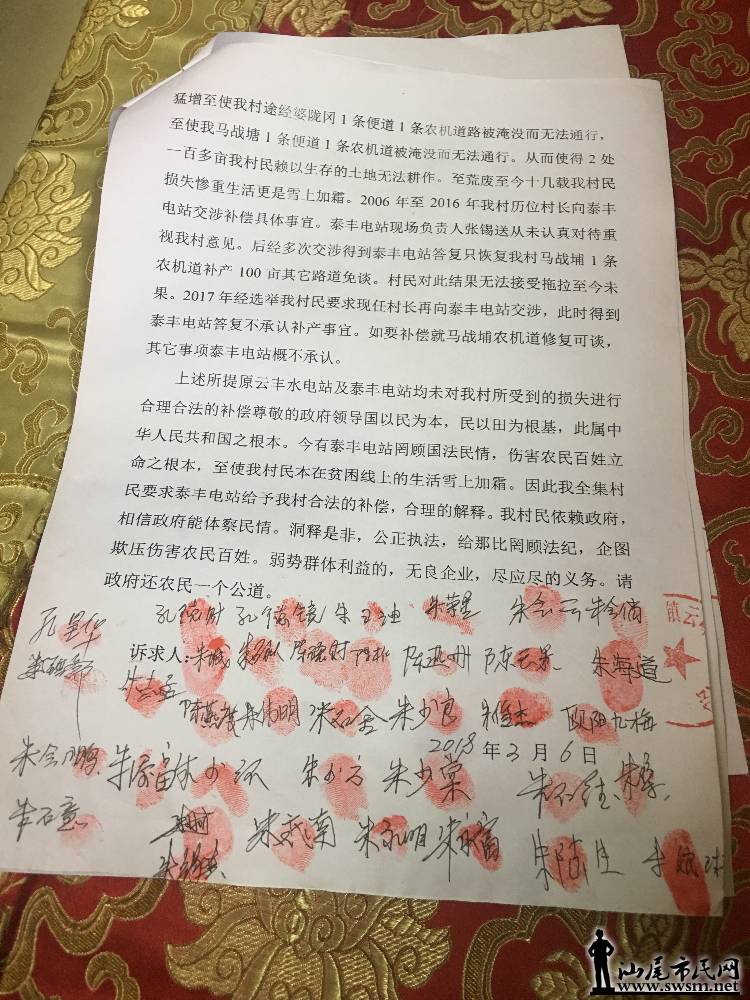 猛增至使我村途经婆陇冈1条便道1条农机道路被淹没而无法通行，
至使我马战塘1条便道1条农机道被淹没而无法通行。从而使得2处
一百多亩我村民赖以生存的土地无法耕作。至荒废至今十几载我村民
损失惨重生活更是雪上加霜。2006年至2016年我村历位村长向泰丰
电站交涉补偿具体事宜。泰丰电站现场负责人张锡送从未认真对待重
视我村意见。后经多次交涉得到泰丰电站答复只恢复我村马战埔1条
农机道补产100亩其它路道免谈。村民对此结果无法接受拖拉至今未
果。2017年经选举我村民要求现任村长再向泰丰电站交涉，此时得到
泰丰电站答复不承认补产事宜。如要补偿就马战埔农机道修复可谈，
其它事项泰丰电站概不承认。
上述所提原云丰水电站及泰丰电站均未对我村所受到的损失进行
合理合法的补偿尊敬的政府领导国以民为本，民以田为根基，此属中
华人民共和国之根本。今有泰丰电站罔顾国法民情，伤害农民百姓立
命之根本，至使我村民本在贫困线上的生活雪上加霜。因此我全集村
民要求泰丰电站给予我村合法的补偿，合理的解释。我村民依赖政府，
相信政府能体察民情。洞释是非，公正执法，给那比罔顾法纪，企图
欺压伤害农民百姓。弱势群体利益的，无良企业，尽应尽的义务。请
政府还农民一个公道。
镇云
诉求人： 朱海道
朱伟明 朱少良 欧阳九梅
2018年3月6日
朱会鹏 朱少宗 朱少棠
朱石意 朱燕南 朱永明 朱永富
汕尾市民网
www.swsm.net